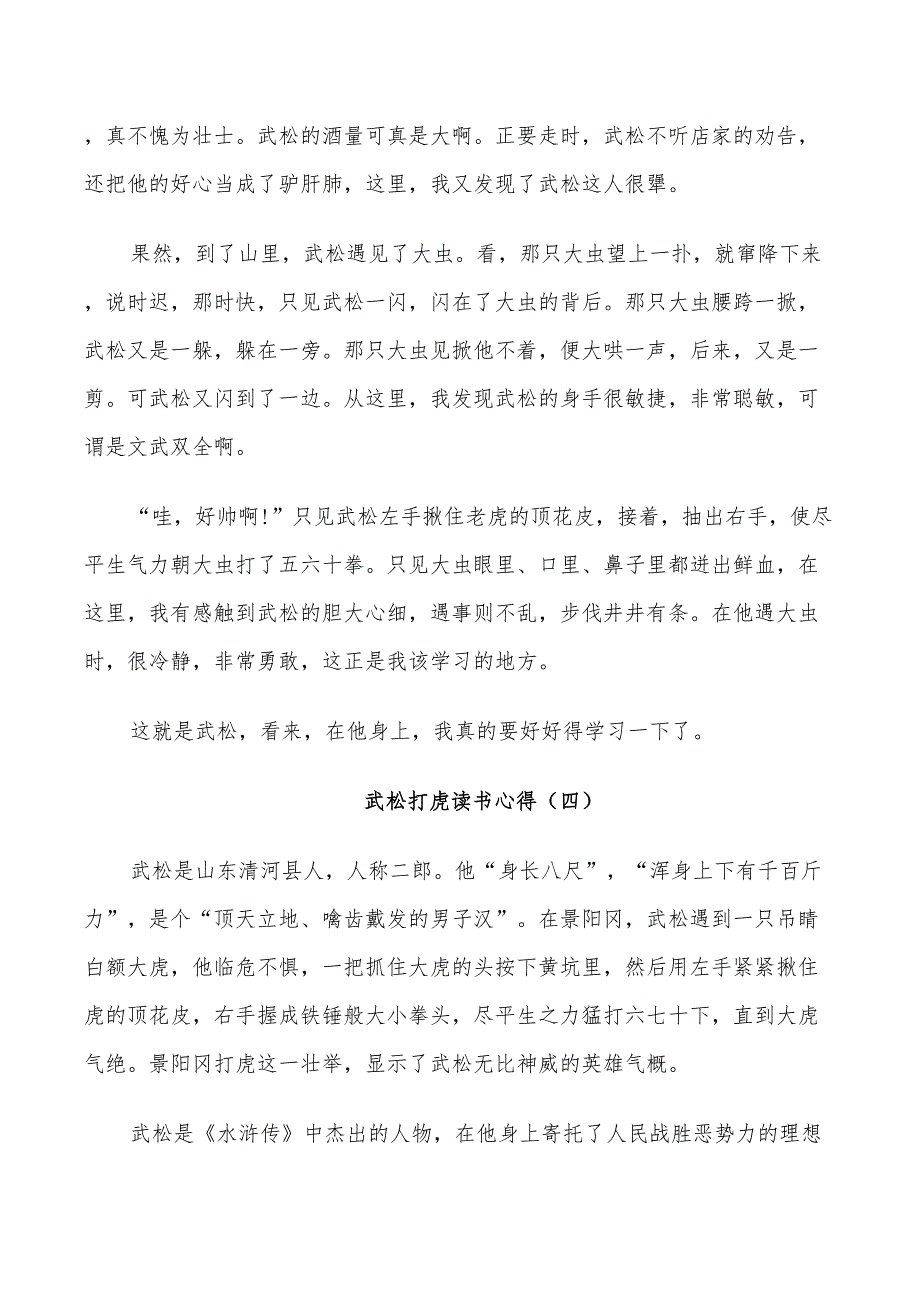 ，真不愧为壮士。武松的酒量可真是大啊。正要走时，武松不听店家的劝告，
还把他的好心当成了驴肝肺，这里，我又发现了武松这人很犟。
果然，到了山里，武松遇见了大虫。看，那只大虫望上一扑，就窜降下来
，说时迟，那时快，只见武松一闪，闪在了大虫的背后。那只大虫腰跨一掀，
武松又是一躲，躲在一旁。那只大虫见掀他不着，便大哄一声，后来，又是一
剪。可武松又闪到了一边。从这里，我发现武松的身手很敏捷，非常聪敏，可
谓是文武双全啊。
“哇，好帅啊!”只见武松左手揪住老虎的顶花皮，接着，抽出右手，使尽
平生气力朝大虫打了五六十拳。只见大虫眼里、口里、鼻子里都迸出鲜血，在
这里，我有感触到武松的胆大心细，遇事则不乱，步伐井井有条。在他遇大虫
时，很冷静，非常勇敢，这正是我该学习的地方。
这就是武松，看来，在他身上，我真的要好好得学习一下了。
武松打虎读书心得（四）
武松是山东清河县人，人称二郎。他“身长八尺”，“浑身上下有千百斤
力”，是个“顶天立地、噙齿戴发的男子汉”。在景阳冈，武松遇到一只吊睛
白额大虎，他临危不惧，一把抓住大虎的头按下黄坑里，然后用左手紧紧揪住
虎的顶花皮，右手握成铁锤般大小拳头，尽平生之力猛打六七十下，直到大虎
气绝。景阳冈打虎这一壮举，显示了武松无比神威的英雄气概。
武松是《水浒传》中杰出的人物，在他身上寄托了人民战胜恶势力的理想